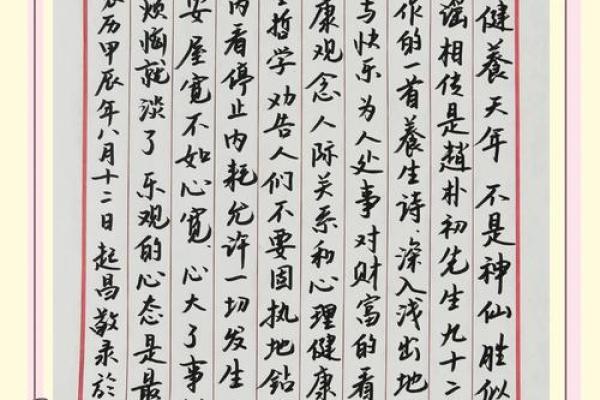 健養天年 不是神仙胜似
谣相传是趙朴初先生九十二
作的一首養生诗.深入浅出地
与快乐 为人处事 对财富的看
康观念 人际关系和心理健康
哲学 劝告人们不要固执地钻
内看停止内耗允许一切发生
安 屋宽不如心宽 心大了事
烦恼就淡了 乐观的心态是最
历甲辰年八月十二日 起昌敬录於